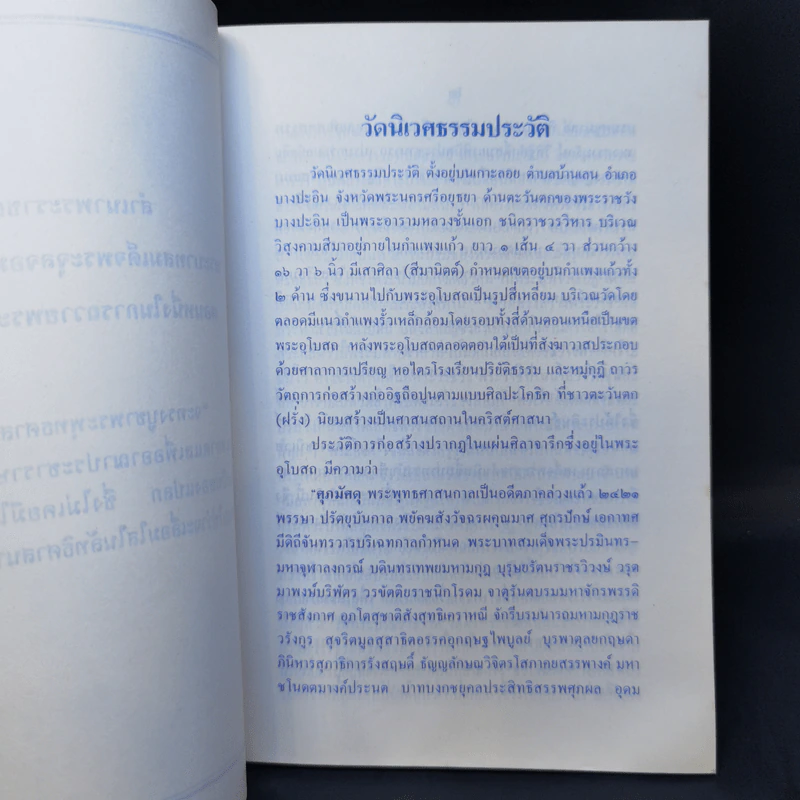 วัดนิเวศธรรมประวัติ
วัดนิเวศธรรมประวัติ ตั้งอยู่บนเกาะลอย ตำบลบ้านเลน อำเภอ
บางปะอิน จังหวัดพระนครศรีอยุธยา ด้านตะวันตกของพระราชวัง
บางปะอิน เป็นพระอารามหลวงชั้นเอก ชนิดราชวรวิหาร บริเวณ
วิสุงคามสีมาอยู่ภายในกำแพงแก้ว ยาว ๑ เส้น ๔ วา ส่วนกว้าง
๑๖ วา ๖ นิ้ว มีเสาศิลา (สีมานิตต์) กำหนดเขตอยู่บนกำแพงแก้วทั้ง
๒ ด้าน ซึ่งขนานไปกับพระอุโบสถเป็นรูปสี่เหลี่ยม บริเวณวัดโดย
ตลอดมีแนวกำแพงรั้วเหล็กล้อมโดยรอบทั้งสี่ด้านตอนเหนือเป็นเขต
พระอุโบสถ หลังพระอุโบสถตลอดตอนใต้เป็นที่สังฆาวาสประกอบ
ด้วยศาลาการเปรียญ หอไตรโรงเรียนปริยัติธรรม และหมู่กุฏี ถาวร
วัตถุการก่อสร้างก่ออิฐถือปูนตามแบบศิลปะโกธิค ที่ชาวตะวันตก
(ฝรั่ง) นิยมสร้างเป็นศาสนสถานในคริสต์ศาสนา
ประวัติการก่อสร้างปรากฏในแผ่นศิลาจารึกซึ่งอยู่ในพระ
อุโบสถ มีความว่า
"ศุภมัศดุ พระพุทธศาสนกาลเป็นอดีตภาคล่วงแล้ว ๒๔๒๑
พรรษา ปรัตยุบันกาล พยัคฆสังวัจฉรผคุณมาศ ศุกรปักษ์ เอกาทศ
มีดิถีจันทรวารบริเฉทกาลกำหนด พระบาทสมเด็จพระปรมินทร-
มหาจุฬาลงกรณ์ บดินทรเทพยมหามกุฎ บุรุษยรัตนราชรวิวงษ์ วรุต
มาพงษ์บริพัตร วรขัตติยราชนิกโรดม จาตุรันตบรมมหาจักรพรรดิ
ราชสังกาศ อุภโตสุชาติสังสุทธิเคราหณี จักรีบรมนารถมหามกุฎราช
วรังกูร สุจริตมูลสุสาธิตอรรคอุกฤษฐไพบูลย์ บุรพาดุลยกฤษดา
ภินิหารสุภาธิการรังสฤษดิ์ ธัญญลักษณวิจิตรโสภาคยสรรพางค์ มหา
ชโนตตมางค์ประนต บาทบงกชยุคลประสิทธิสรรพศุภผล อุดม